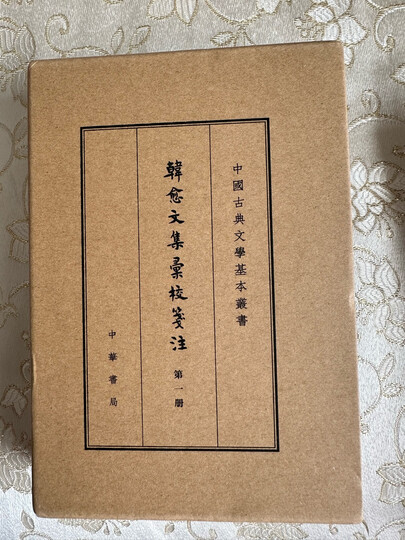 中國古典文學基本叢書
韓愈文集彙校箋注
第一册
中華書局